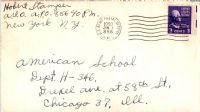 Hobert Stamper
A.P.O. 856 % P.M.
New York N.Y.
American School
Dept H-346,
Drexel ave, at 58th St,
Chicago 37, Ill.
3 CENTS 3